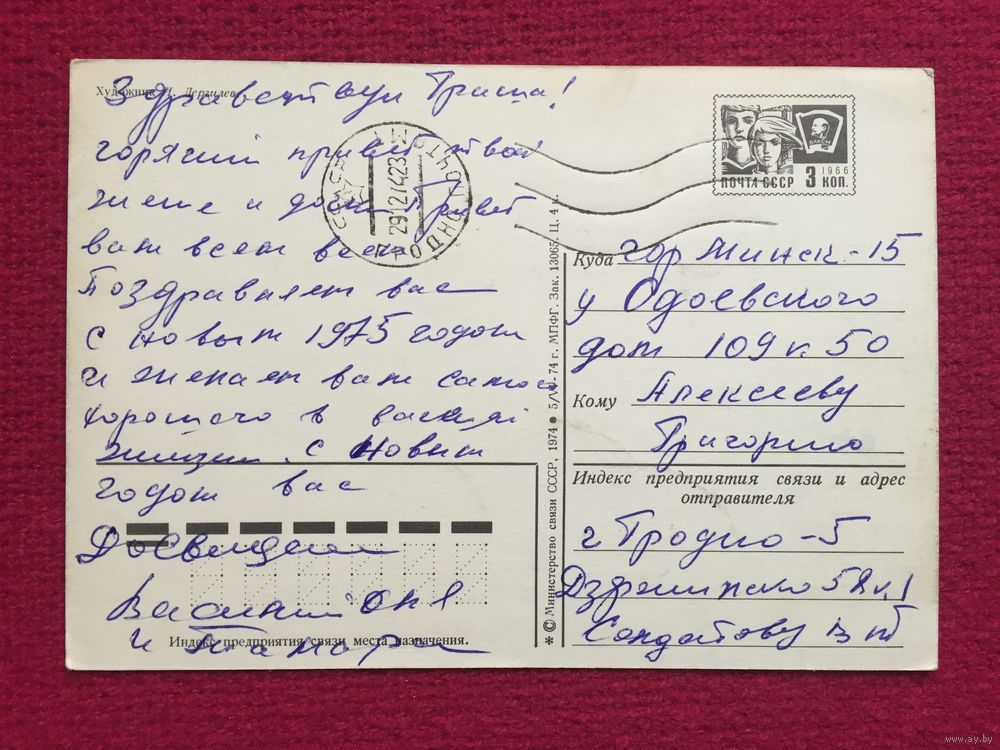 Художник И. Дергилев
Здравствуй Гриша!
горячий привет твоей
жене и дочке Привет
вам всем
Поздравляем вас
с Новым 1975 годом
и желаем вам самое
хорошего в вашей
жизни. с Новым
годом вас
Досвидания
Василий
и Тамара
Индекс предприятия связи места назначения.
ПОЧТА СССР 3 КОП.
1966
ВЛКСМ
ГРОДНО ПОЧТАМТ
29127423
СССР
* © Министерство связи СССР, 1974 ● 5/VI-74 г. МПФГ. Зак. 13065. Ц. 4 к.
Куда гор Минск-15
у Одоевского
дом 109 к. 50
Кому Алексееву
Григорию
Индекс предприятия связи и адрес
отправителя
г Гродно-5
58 к. 1
Солдатову
www.ay.by